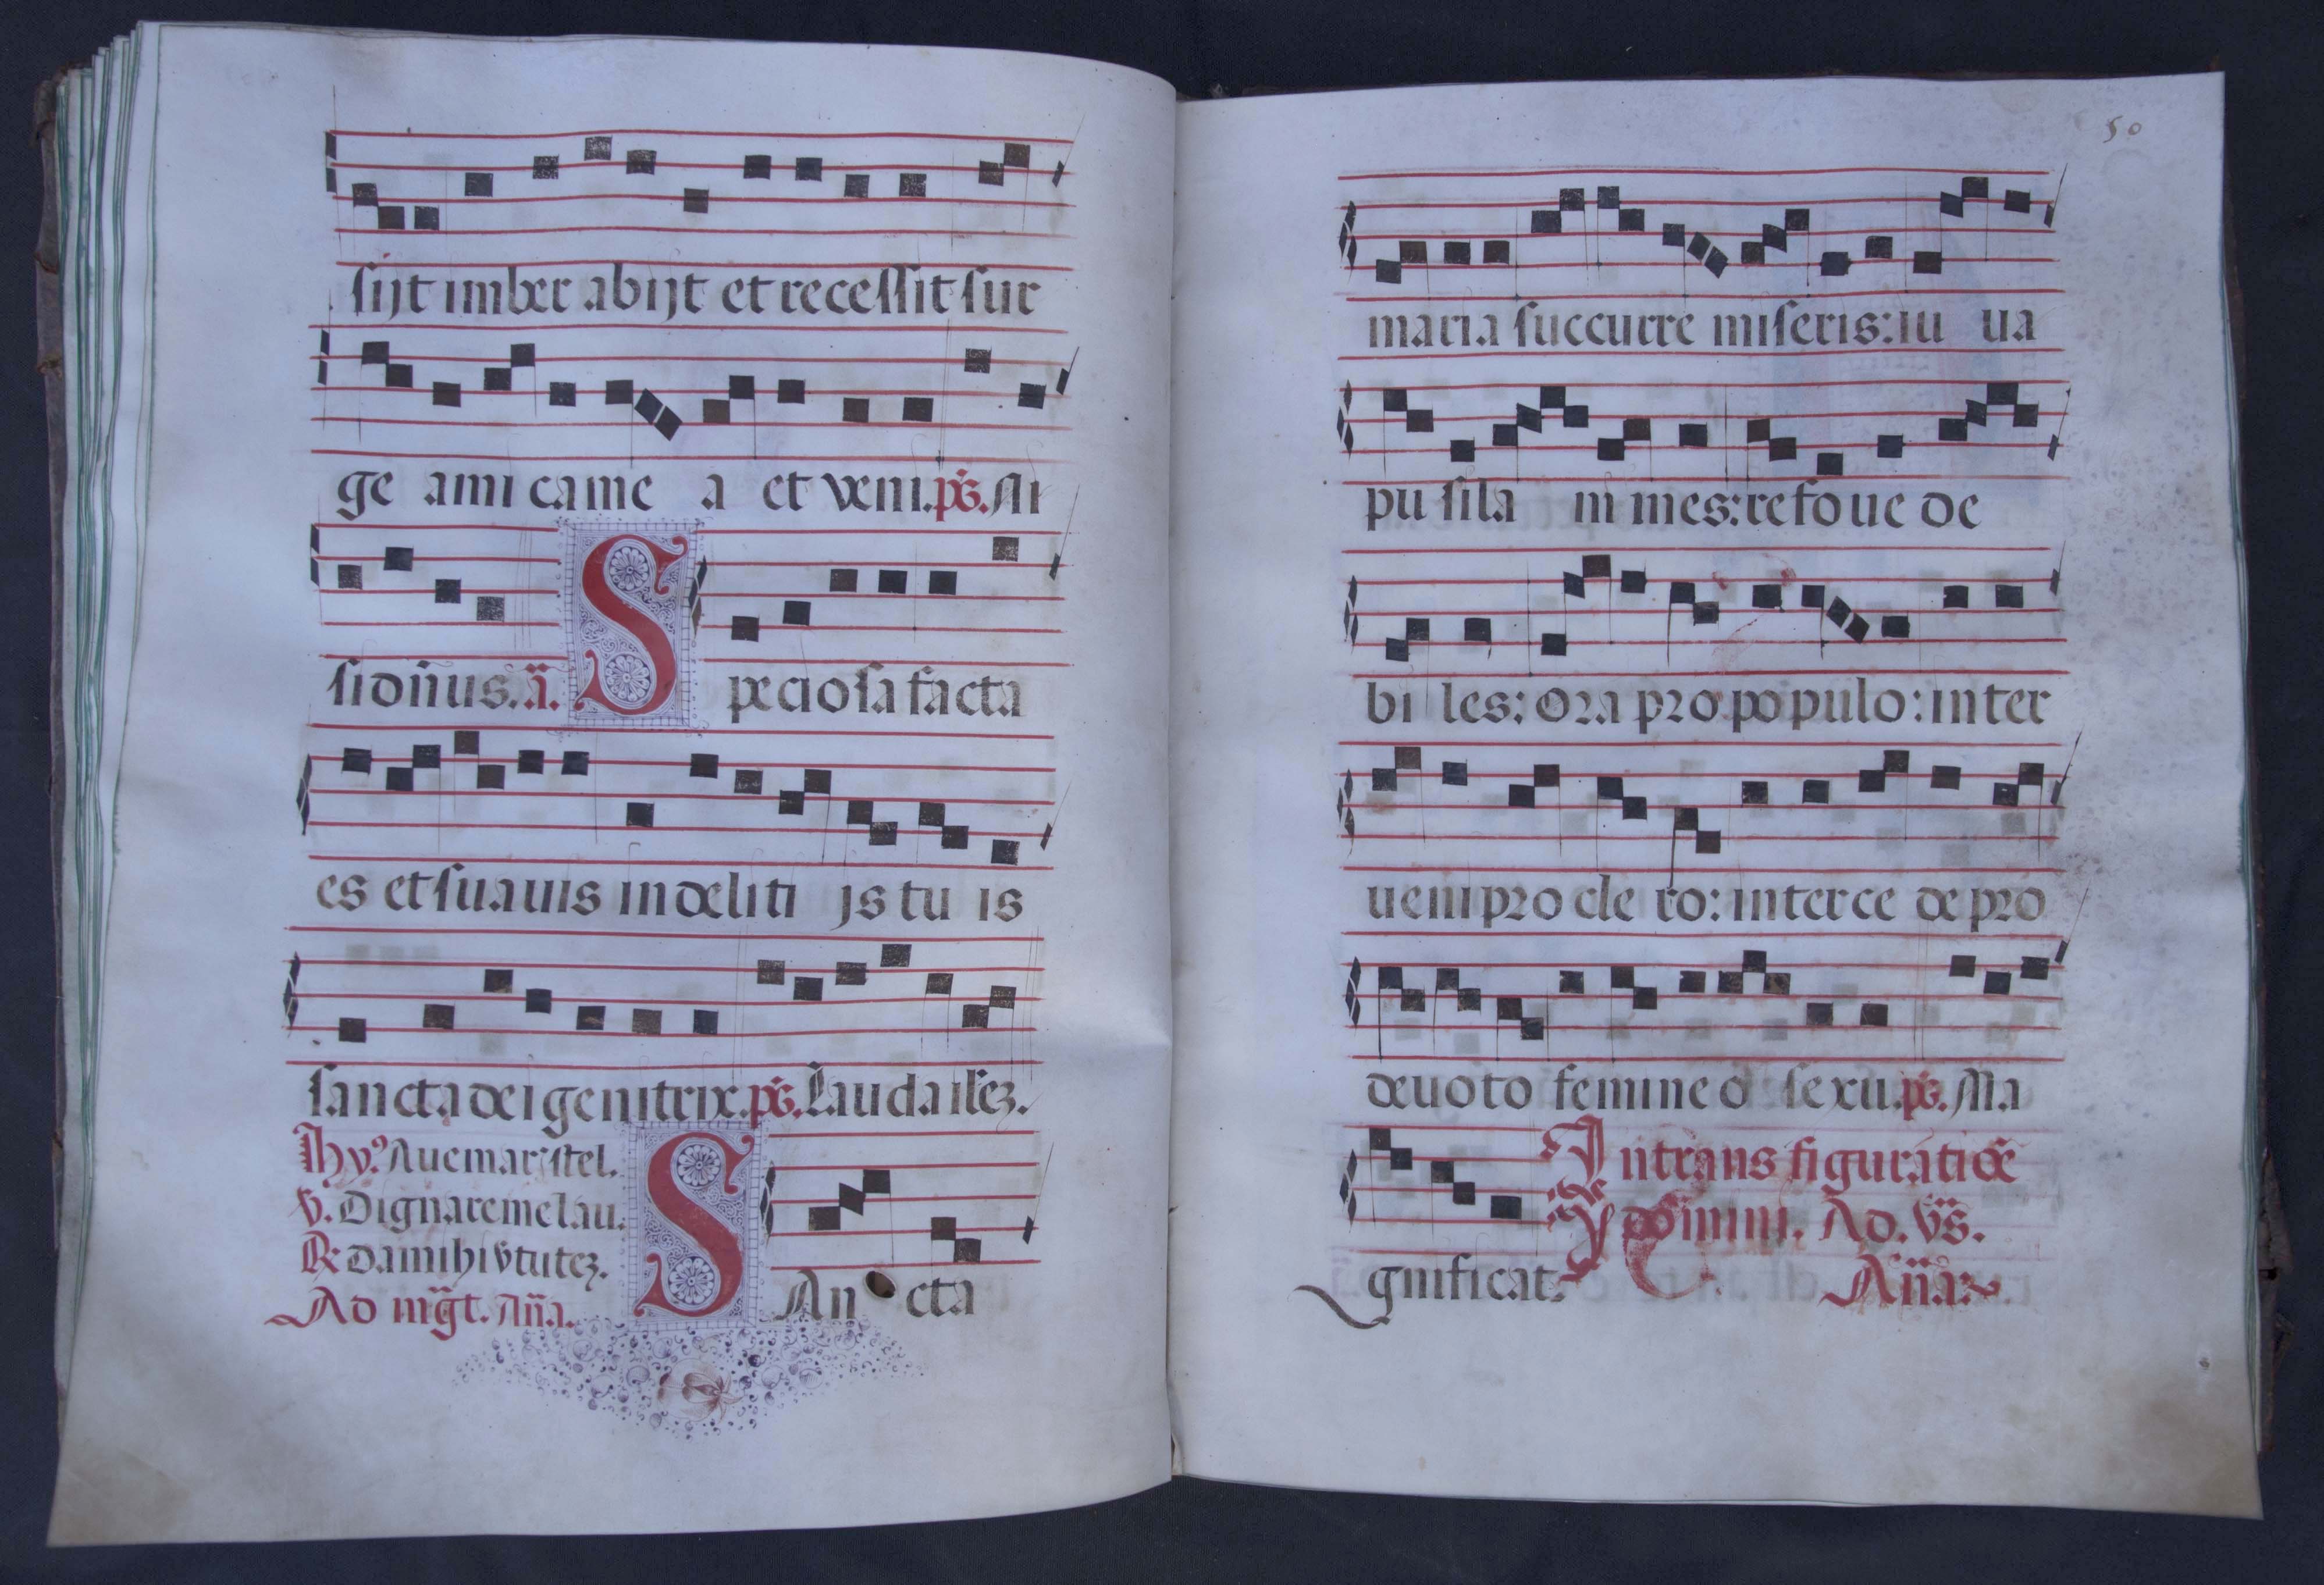 sijt imber abijt et recessit sur
ge ami came a et veni. ps. Ni
si dñus. ã. S pe cio sa facta
es et suavis in deliti js tu is
sancta dei genitrix. ps. Lauda ilез.
Hỹ. Ave maris stel.
V. Dignare me lau.
R. Da mihi vtutez.
Ad mgt. Aña.
SAn cta
50
maria succurre miseris: iu va
pu sila ni mes: refoue de
bi les: Ora pro populo: inter
ueni pro cle ro: interce de pro
deuoto femineo sexu. ps. Ma
gnificat.
In trans figuratiōe
domini. Ad. Vs̃.
Aña.